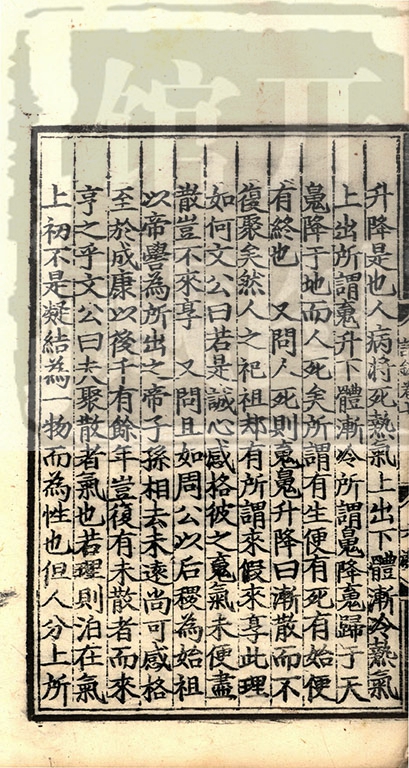 升降是也人病將死熱氣上出下體漸冷熱氣
上出所謂䰟升下體漸冷所謂鬽降䰟歸于天
鬽降于地而人死矣所謂有生便有死有始便
有終也又問人死則䰟鬽升降曰漸散而不
復聚矣然人之祀祖却有所謂來假來享此理
如何文公曰若是誠心感格彼之䰟氣未便盡
散豈不來享又問且如周公以后稷為始祖
以帝嚳為所出之帝子孫相去未遠尚可感格
至於成康以後千有餘年豈復有未散者而來
享之乎文公曰夫聚散者氣也若理則泊在氣
上初不是凝結為一物而為性也但人分上所